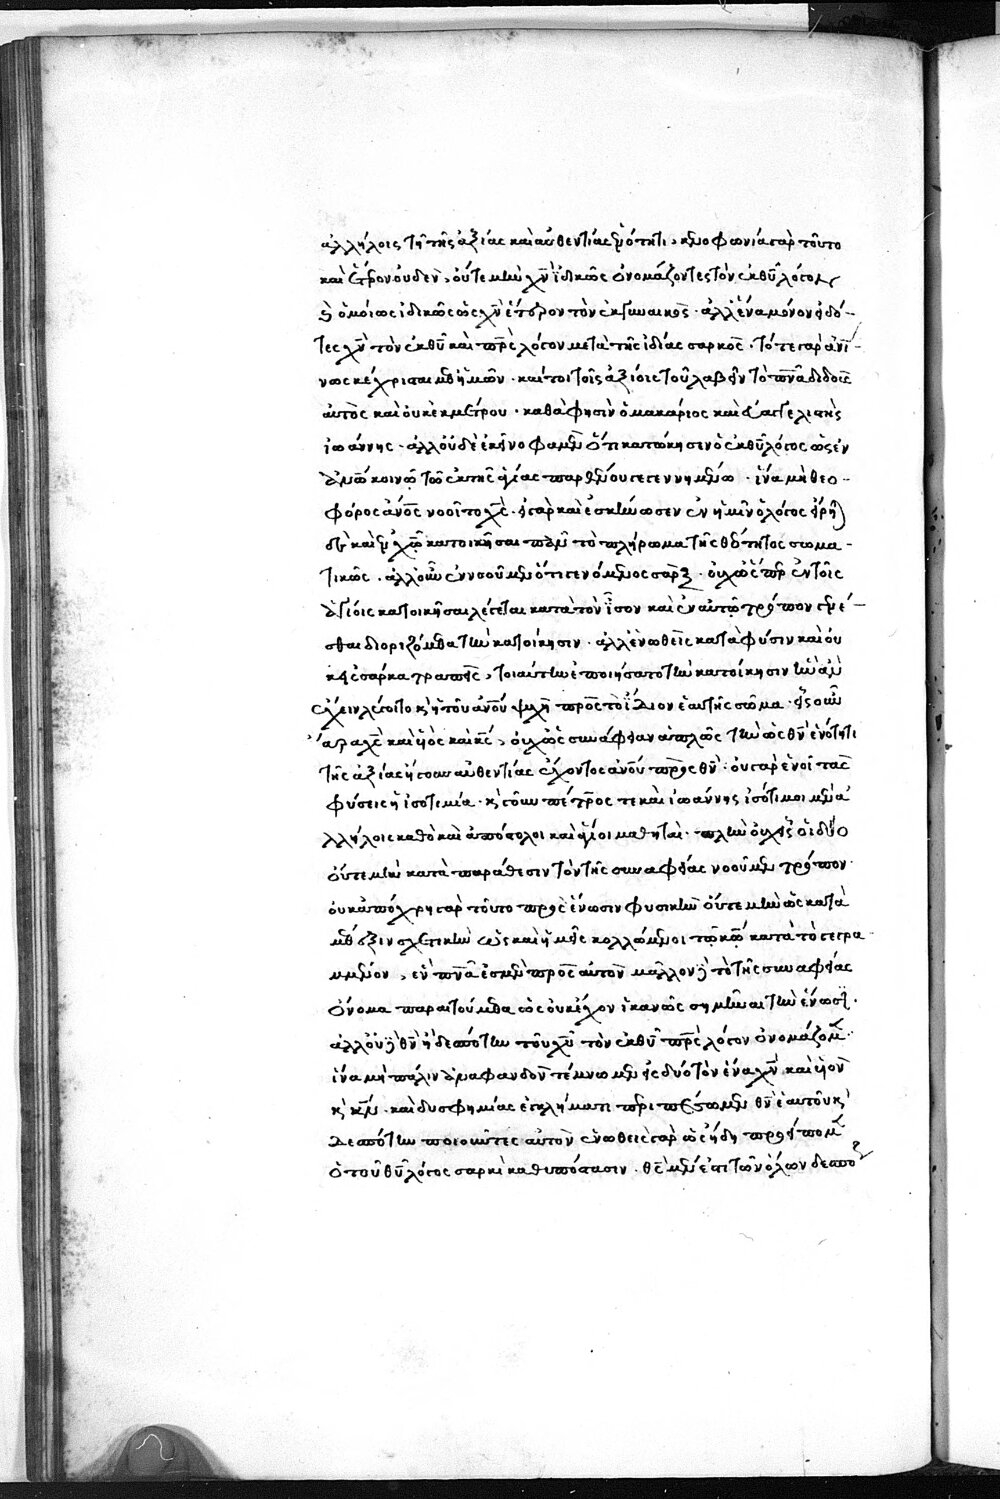 ἀλλήλοις τῇ τῆς ἀξίας καὶ αὐθεντίας ἑνότητι, κενοφωνία γὰρ τοῦτο
καὶ ἕτερον οὐδὲν, οὔτε μὴν χν ἰδικῶς ὀνομάζοντες τὸν ἐκ θυ λόγον
καὶ ὁμοίως ἰδικῶς ὡς χν ἕτερον τὸν ἐκ γυναικός· ἀλλ' ἕνα μόνον εἰδό-
τες χν τὸν ἐκ θυ καὶ πρς λόγον μετὰ τῆς ἰδίας σαρκός· τότε γὰρ ἀνί-
νως κέχρισται μεθ' ἡμῶν· καίτοι τοῖς ἀξίοις τοῦ λαβεῖν τὸ πνα διδοὺς
αὐτὸς καὶ οὐκ ἐκ μέτρου· καθά φησιν ὁ μακάριος καὶ εὐαγγελιστὴς
ἰωάννης· ἀλλ' οὐδὲ ἐκεῖνο φαμὲν ὅτι κατώκησεν ὁ ἐκ θυ λόγος ὡς ἐν
ἀνῳ κοινῷ τῷ ἐκ τῆς ἁγίας παρθένου γεγεννημένῳ· ἵνα μὴ θεο-
φόρος ἀνος νοοῖτο χς· εἰ γὰρ καὶ ἐσκήνωσεν ἐν ἡμῖν ὁ λόγος εἴρηται
δὲ καὶ ἐν χῷ κατοικῆσαι πᾶν τὸ πλήρωμα τῆς θεότητος σωμα-
τικῶς· ἀλλ' οὖν ἐννοοῦμεν ὅτι γενόμενος σάρξ· οὐχ ὥσπερ ἐν τοῖς
ἁγίοις κατοικῆσαι λέγεται κατὰ τὸν ἴσον καὶ ἐν αὐτῷ τρόπον γενέ-
σθαι διοριζόμεθα τὴν κατοίκησιν· ἀλλ' ἑνωθεὶς κατὰ φύσιν καὶ οὐ
κ εἰς σάρκα τραπεὶς, τοιαύτην ἐποιήσατο τὴν κατοίκησιν ἣν ἂν
ἔχειν λέγοιτο καὶ ἡ τοῦ ἀνου ψυχὴ πρὸς τὸ ἴδιον ἑαυτῆς σῶμα· εἷς οὖν
ἄρα χς καὶ υἱὸς καὶ κς, οὐχ ὡς συνάφειαν ἁπλῶς τὴν ὡς θν ἑνότητι
τῆς ἀξίας ἤγουν αὐθεντίας ἔχοντος ἀνου πρὸς θν· οὐ γὰρ ἑνοῖ τὰς
φύσεις ἡ ἰσοτιμία· καὶ γοῦν πέτρος τε καὶ ἰωάννης ἰσότιμοι μὲν ἀ
λλήλοις καθὸ καὶ ἀπόστολοι καὶ ἅγιοι μαθηταί· πλὴν οὐχ εἷς οἱ δύο
οὔτε μὴν κατὰ παράθεσιν τὸν τῆς συναφείας νοοῦμεν τρόπον·
οὐκ ἀπόχρη γὰρ τοῦτο πρὸς ἕνωσιν φυσικὴν οὔτε μὴν ὡς κατὰ
μέθεξιν σχετικὴν ὡς καὶ ἡμεῖς κολλώμενοι τῷ κῷ κατὰ τὸ γεγρα-
μμένον, ἓν πνα ἐσμὲν πρὸς αὐτὸν μᾶλλον δὲ τὸ τῆς συναφείας
ὄνομα παραιτούμεθα ὡς οὐκ ἔχον ἱκανῶς σημῆναι τὴν ἕνωσιν·
ἀλλ' οὐδὲ θν ἢ δεσπότην τοῦ χυ τὸν ἐκ θυ πρς λόγον ὀνομάζομεν·
ἵνα μὴ πάλιν ἀναφανδὸν τέμνωμεν εἰς δύο τὸν ἕνα χν καὶ υἱὸν
καὶ κν· καὶ δυσφημίας ἐγκλήματι περιπέσωμεν θν ἑαυτοῦ καὶ
δεσπότην ποιοῦντες αὐτὸν ἑνωθεὶς γὰρ ὡς ἤδη προείπομεν
ὁ τοῦ θυ λόγος σαρκὶ καθυπόστασιν· θς μέν ἐστι τῶν ὅλων δεσπό